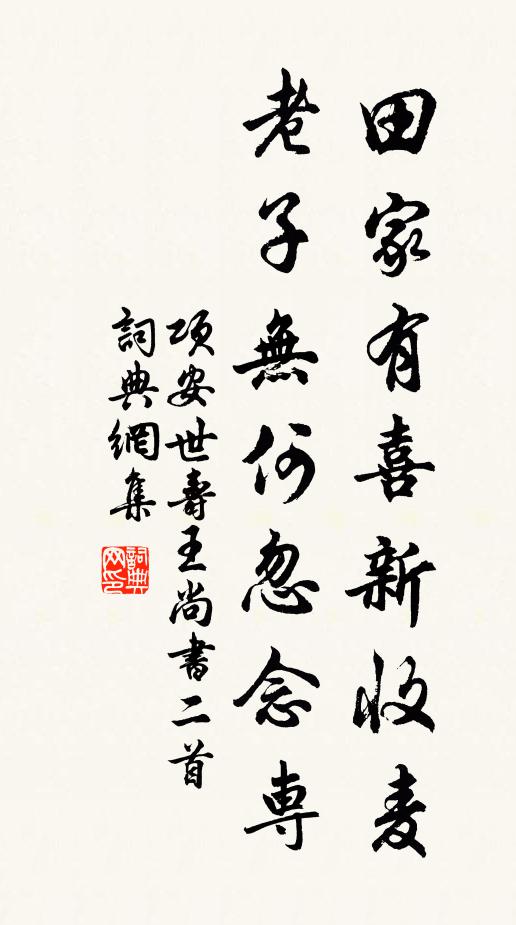 田家有喜新收麦
老子無何忽念専
项安世壽王尚書二首
詞典網集
詞典网印